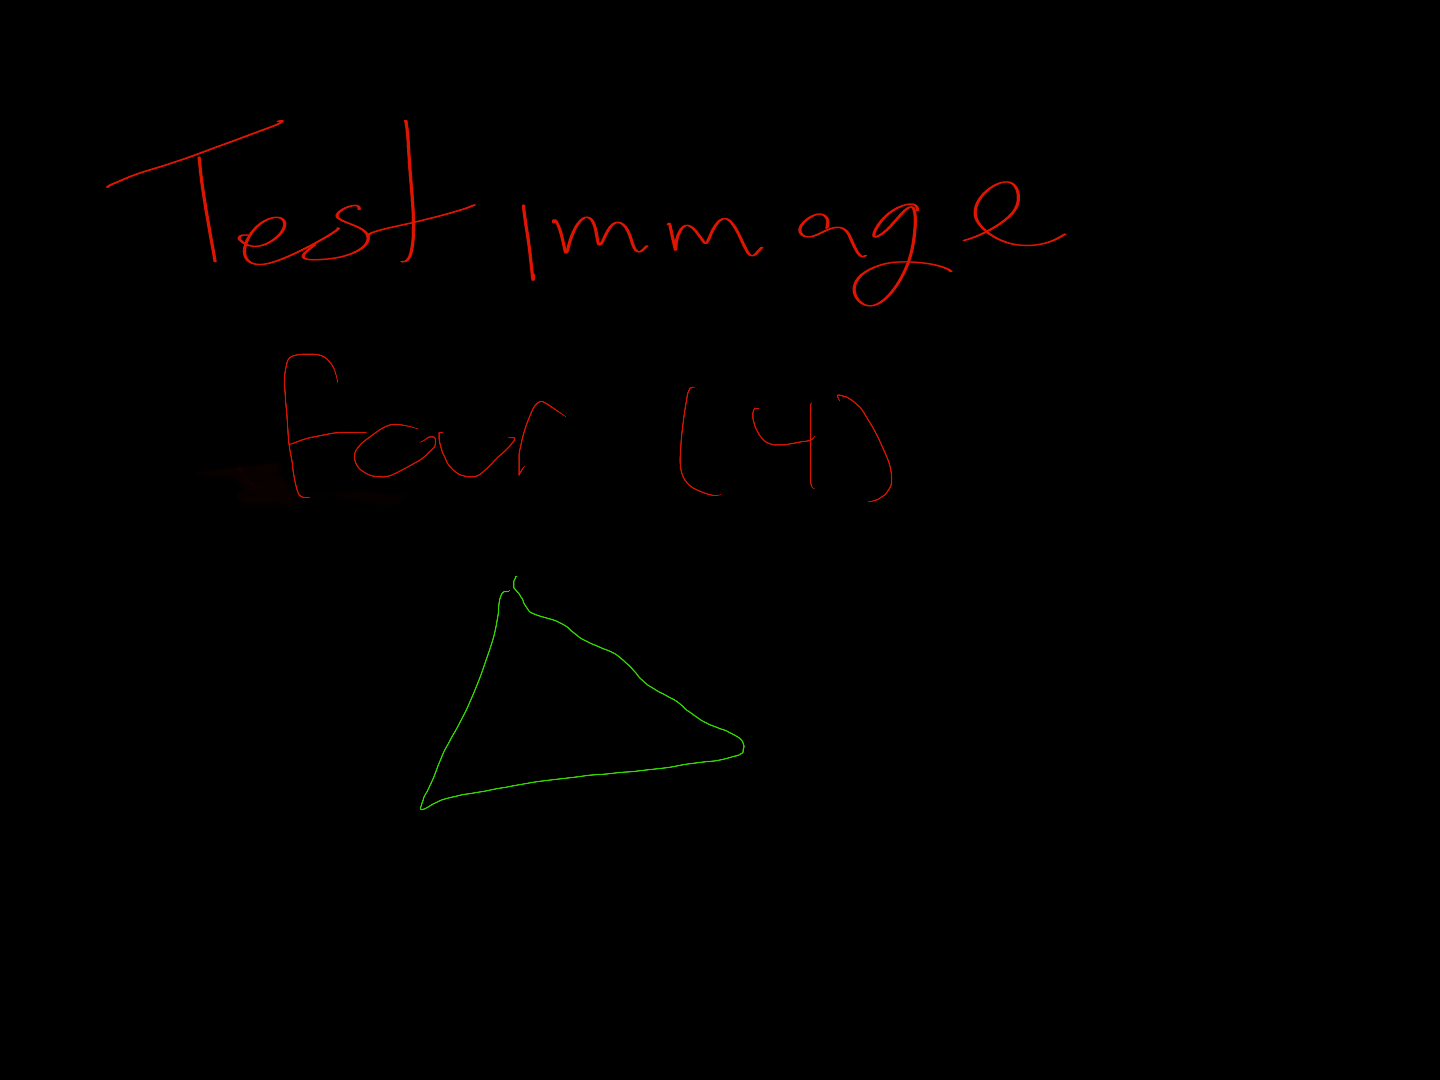 Test immage
four (4)